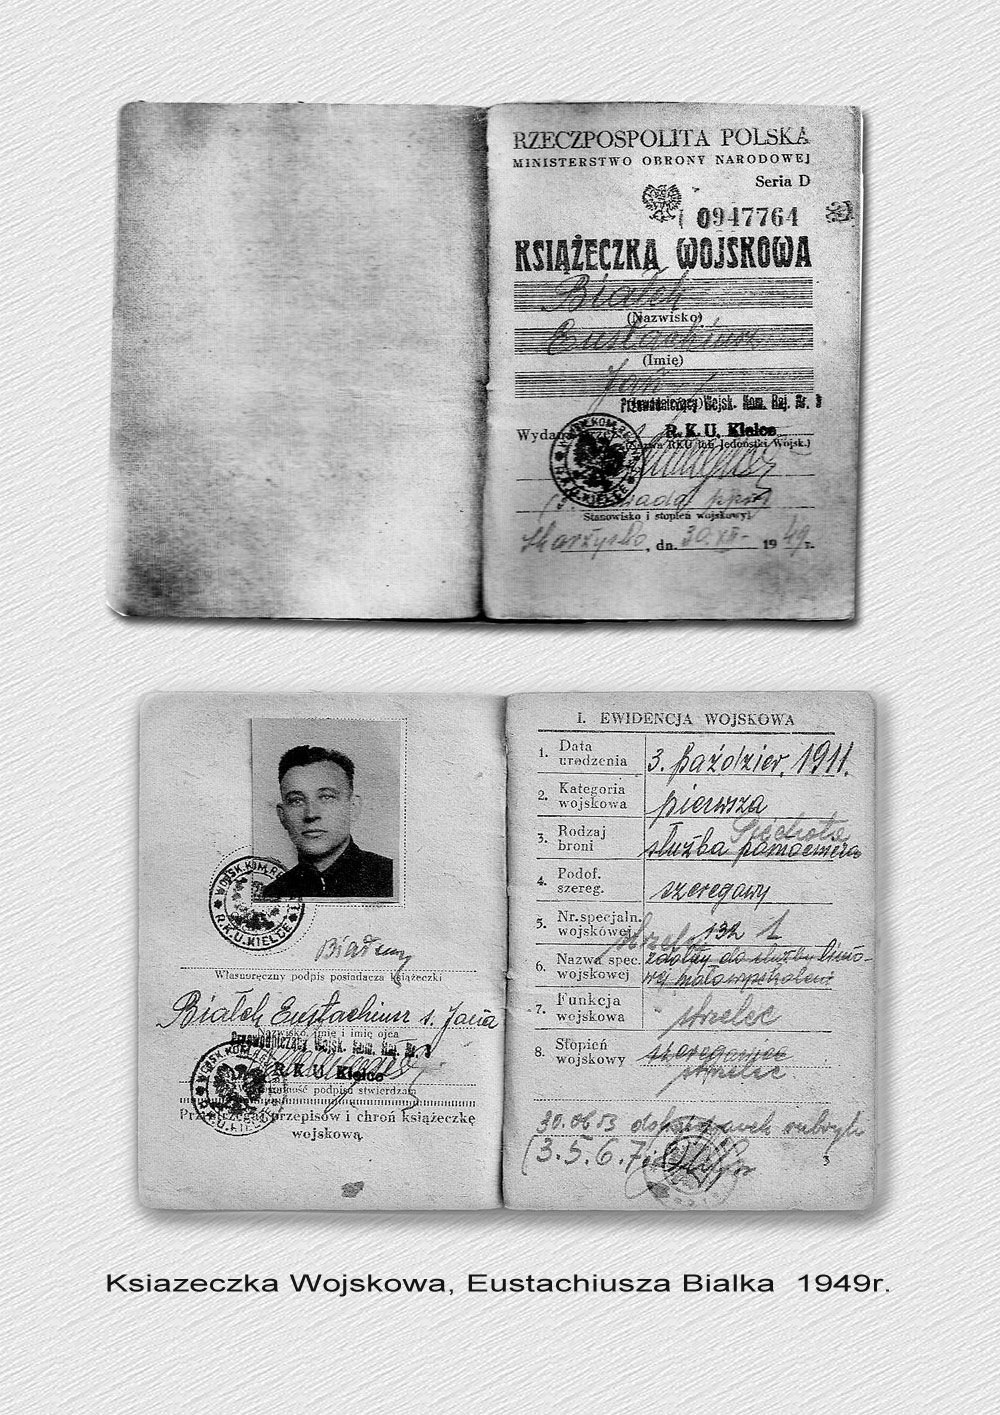 RZECZPOSPOLITA POLSKA
MINISTERSTWO OBRONY NARODOWEJ
Seria D
0947764
KSIĄŻECZKA WOJSKOWA
Białek
(Nazwisko)
Eustachiusz
(Imię)
Jan
Przewodniczący Wojsk. Kom. Rej. Nr. 3
Wydana przez R.K.U. Kielce
(Nazwa RKU lub Jednostki Wojsk.)
Stanowisko i stopień wojskowy
Skarżysko, dn. 30.XII- 1949 r.
WOJSK. KOM. REJ.
R.K.U. KIELCE
Własnoręczny podpis posiadacza książeczki
Białek Eustachiusz s. Jana
Nazwisko, imię i imię ojca
Przewodniczący Wojsk. Kom. Rej. Nr. 3
R.K.U. Kielce
podpisu stwierdzam
Przestrzegaj przepisów i chroń książeczkę
wojskową.
I. EWIDENCJA WOJSKOWA
1. Data urodzenia 3. paździer. 1911.
2. Kategoria wojskowa pierwsza
3. Rodzaj broni Piechota
służba pomocnicza
4. Podof. szereg. szeregowy
5. Nr. specjaln. wojskowej 132 1
strzelec
6. Nazwa spec. wojskowej zdolny do służby linio-
wej małowyszkolony
7. Funkcja wojskowa strzelec
8. Stopień wojskowy szeregowiec
strzelec
30.06 53 rubryk
(3.5.6.7
3
Ksiazeczka Wojskowa, Eustachiusza Bialka 1949r.